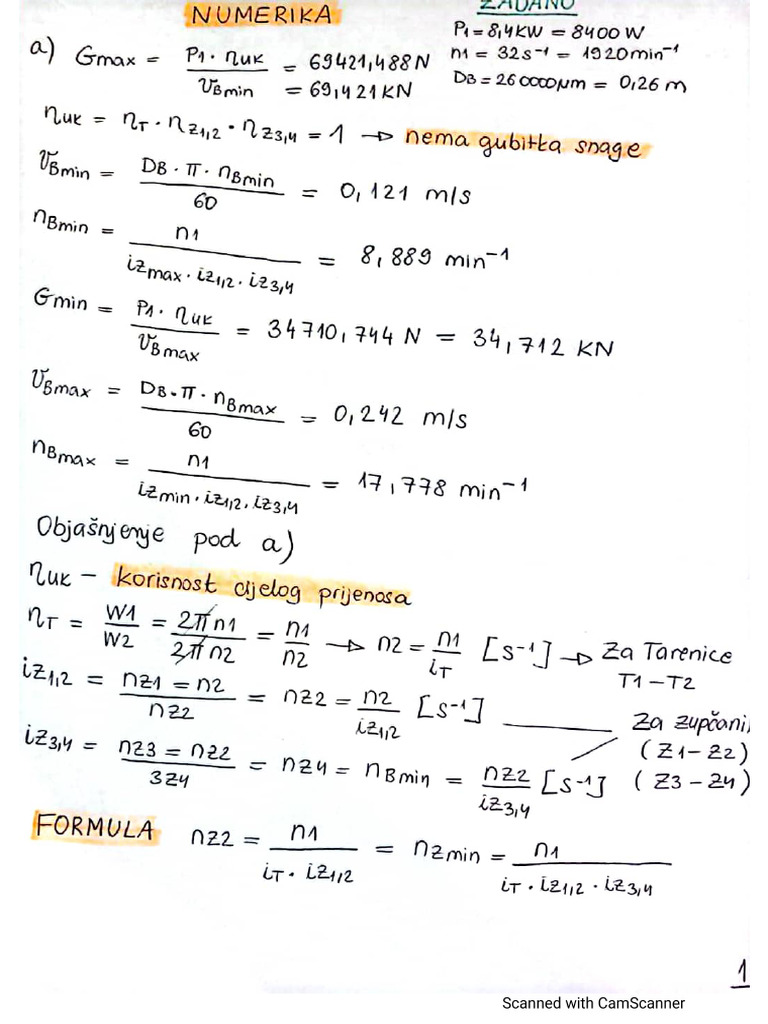 NUMERIKA
ZADANO
P1 = 8,4KW = 8400 W
n1 = 32s⁻¹ = 1920min⁻¹
DB = 260000μm = 0,26 m
a) Gmax = P1 · ηuk / vBmin = 69421,488N
= 69,421KN
ηuk = ηT · ηZ1,2 · ηZ3,4 = 1 → nema gubitka snage
vBmin = DB · π · nBmin / 60 = 0,121 m/s
nBmin = n1 / izmax · iz1,2 · iz3,4 = 8,889 min⁻¹
Gmin = P1 · ηuk / vBmax = 34710,744 N = 34,712 KN
vBmax = DB · π · nBmax / 60 = 0,242 m/s
nBmax = n1 / izmin · iz1,2 · iz3,4 = 17,778 min⁻¹
Objašnjenje pod a)
ηuk – korisnost cijelog prijenosa
ηT = W1 / W2 = 2πn1 / 2πn2 = n1 / n2 → n2 = n1 / iT [s⁻¹] → za Tarenice
T1–T2
iz1,2 = nz1 = n2 / nz2 = nz2 = n2 / iz1,2 [s⁻¹] za zupčani
(Z1–Z2)
iz3,4 = nz3 = nz2 / 3z4 = nz4 = nBmin = nz2 / iz3,4 [s⁻¹] (Z3–Z4)
FORMULA nz2 = n1 / iT · iz1,2 = nzmin = n1 / iT · iz1,2 · iz3,4
1
Scanned with CamScanner